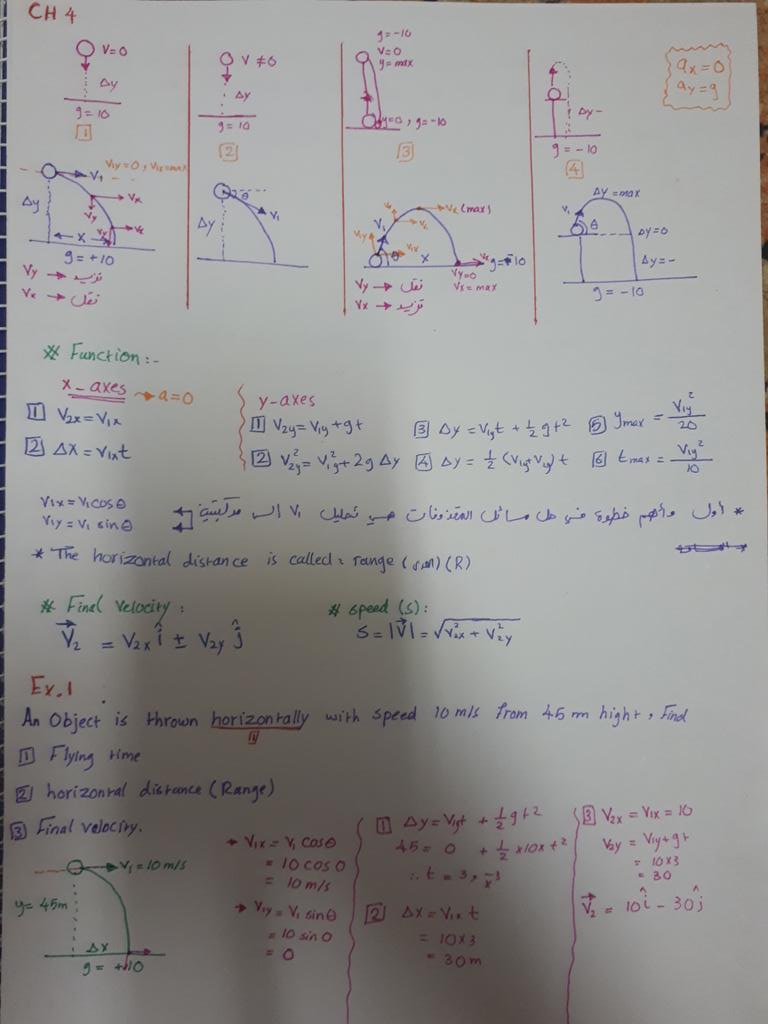 CH 4
V=0
Δy
g = 10
1
V ≠ 0
Δy
g = 10
2
g = -10
V=0
y = max
y=0, g=-10
3
Δy-
g = -10
4
ax = 0
ay = g
V1y=0, V1x=max
V1
Δy
Vx
Vy
X
g = +10
Vy → تزيد
Vx → تقل
θ
V1
Δy
Vx (max)
Vx
V1
V1y
V1x
θ
X
g = -10
Vy=0
Vx = max
Vy → تقل
Vx → تزيد
Δy = max
V1
θ
Δy=0
Δy = -
g = -10
※ Function :-
x - axes → a=0
1 V2x = V1x
2 ΔX = V1x t
y-axes
1 V2y = V1y + gt
2 V2y² = V1y² + 2g Δy
3 Δy = V1y t + 1/2 gt²
4 Δy = 1/2 (V1y + V2y) t
5 ymax = V1y²/20
6 tmax = V1y²/10
* أول وأهم خطوة في حل مسائل المقذوفات هي تحليل V1 الى مركبتين
V1x = V1 cosθ
V1y = V1 sinθ
* The horizontal distance is called: range (المدى) (R)
※ Final velocity :
V⃗2 = V2x î ± V2y ĵ
※ speed (s) :
S = |V⃗| = √V2x² + V2y²
Ex.1
An Object is thrown horizontally with speed 10 m/s from 45 m hight, Find
1 Flying time
2 horizontal distance (Range)
3 Final velocity.
V1 = 10 m/s
y = 45m
Δx
g = +10
→ V1x = V1 cosθ
= 10 cos 0
= 10 m/s
→ V1y = V1 sinθ
= 10 sin 0
= 0
1 Δy = V1y t + 1/2 gt²
45 = 0 + 1/2 x10x t²
∴ t = 3, -3
x
2 ΔX = V1x t
= 10x3
= 30 m
3 V2x = V1x = 10
V2y = V1y + gt
= 10x3
= 30
V⃗2 = 10 î - 30 ĵ